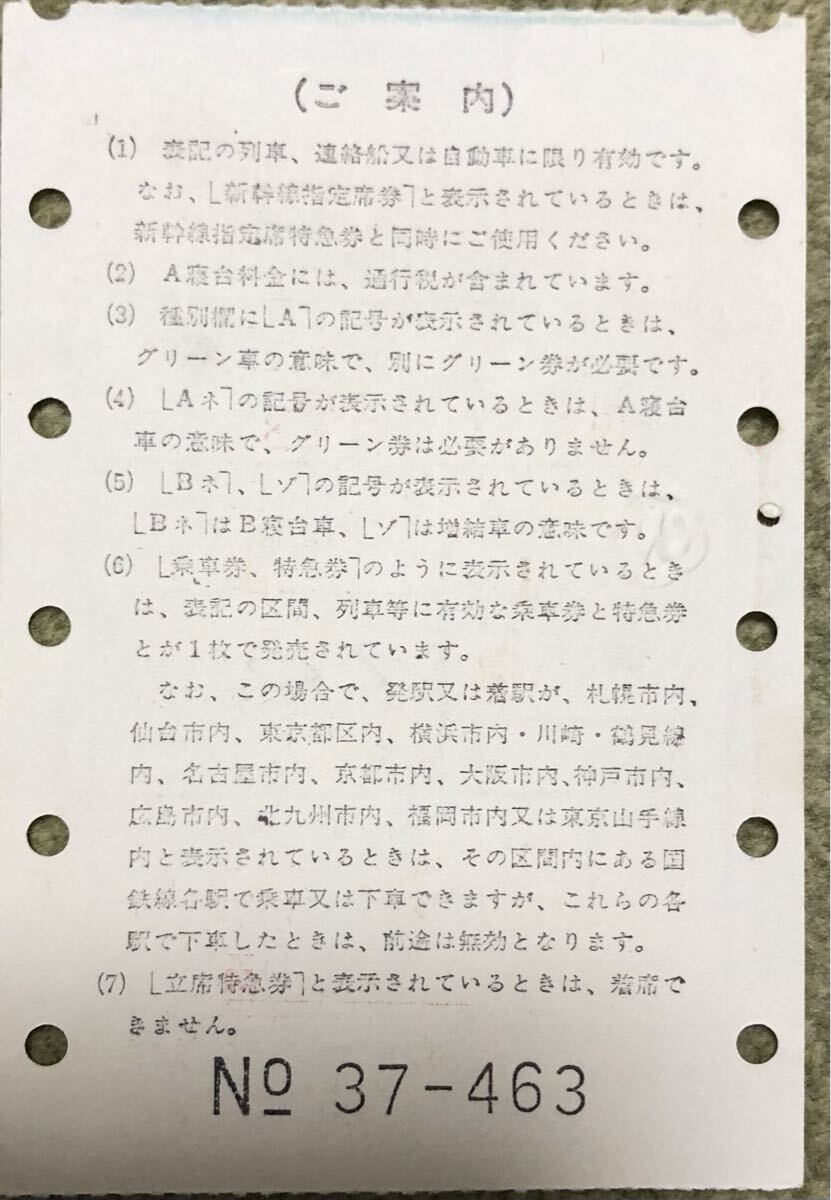 (ご案内)
(1) 表記の列車、連絡船又は自動車に限り有効です。
なお、⌊新幹線指定席券⌉と表示されているときは、
新幹線指定席特急券と同時にご使用ください。
(2) A寝台料金には、通行税が含まれています。
(3) 種別欄に⌊A⌉の記号が表示されているときは、
グリーン車の意味で、別にグリーン券が必要です。
(4) ⌊Aネ⌉の記号が表示されているときは、A寝台
車の意味で、グリーン券は必要がありません。
(5) ⌊Bネ⌉、⌊ゾ⌉の記号が表示されているときは、
⌊Bネ⌉はB寝台車、⌊ゾ⌉は増結車の意味です。
(6) ⌊乗車券、特急券⌉のように表示されているとき
は、表記の区間、列車等に有効な乗車券と特急券
とが1枚で発売されています。
なお、この場合で、発駅又は着駅が、札幌市内、
仙台市内、東京都区内、横浜市内・川崎・鶴見線
内、名古屋市内、京都市内、大阪市内、神戸市内、
広島市内、北九州市内、福岡市内又は東京山手線
内と表示されているときは、その区間内にある国
鉄線各駅で乗車又は下車できますが、これらの各
駅で下車したときは、前途は無効となります。
(7) ⌊立席特急券⌉と表示されているときは、着席で
きません。
№ 37-463